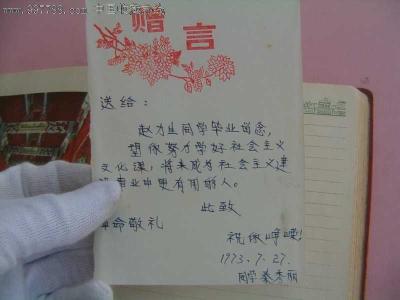 www.997788.com 中国收藏热线
赠言
送给：
赵力生同学毕业留念，
望你努力学好社会主义
文化课，将来成为社会主义建
设事业中更有用的人。
此致
革命敬礼
祝你峥嵘！
1973.7.27.
同学 秦秀丽